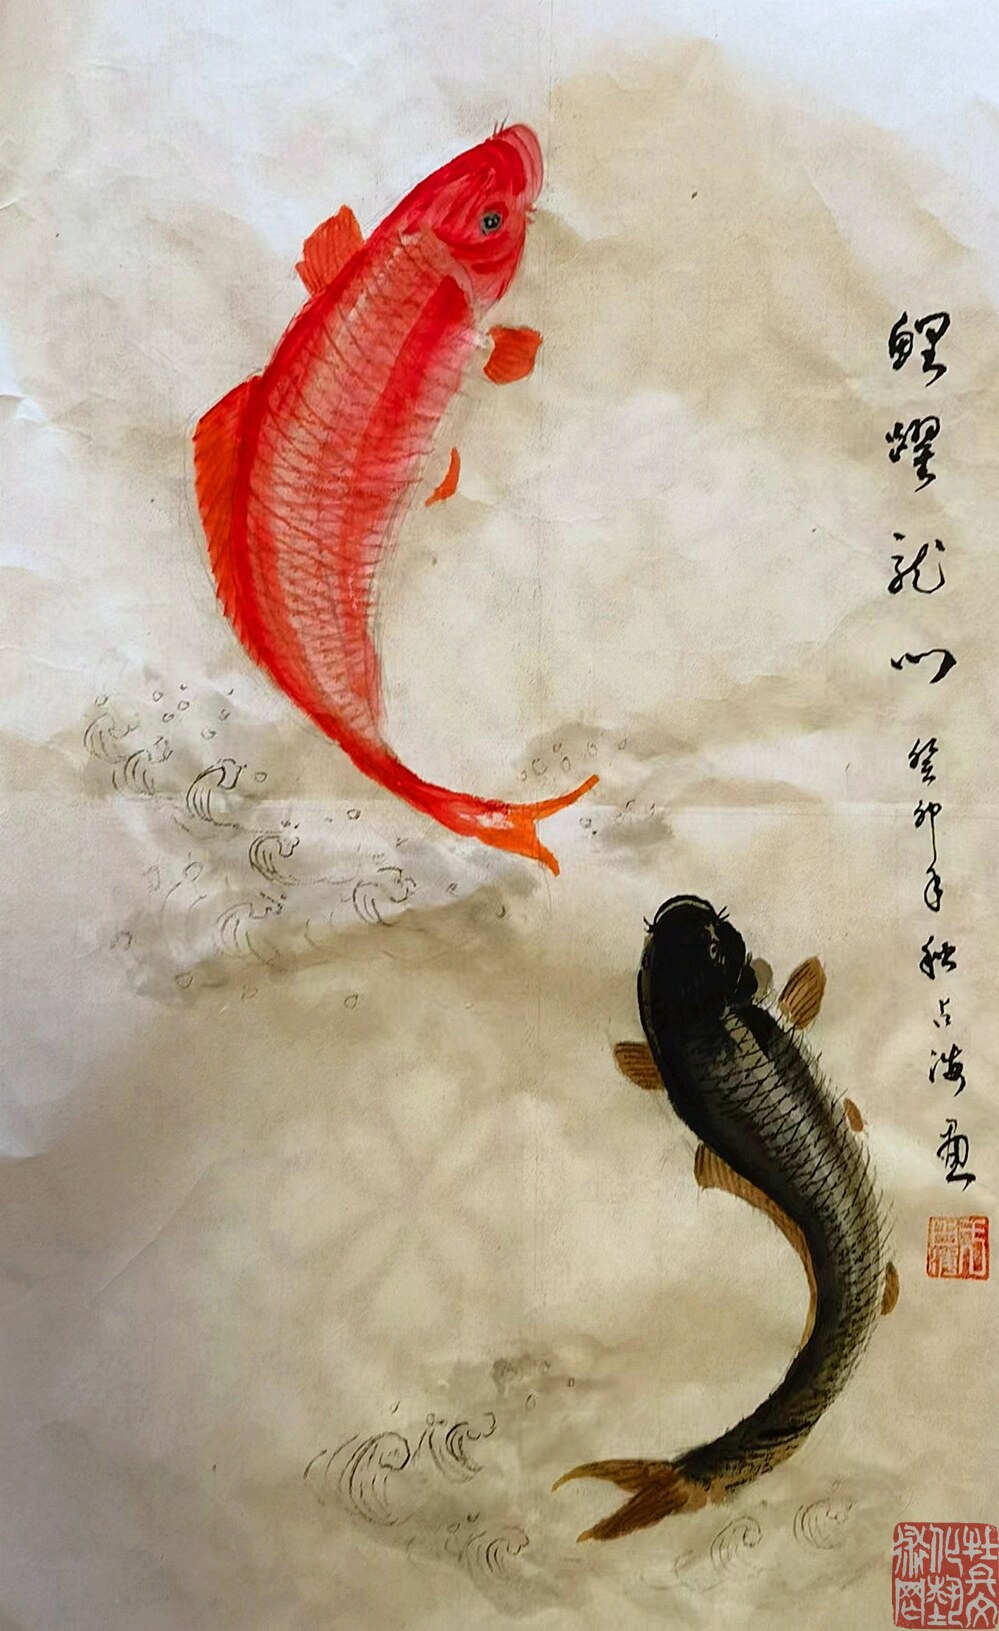 鲤躍龙门
癸卯年秋占海画